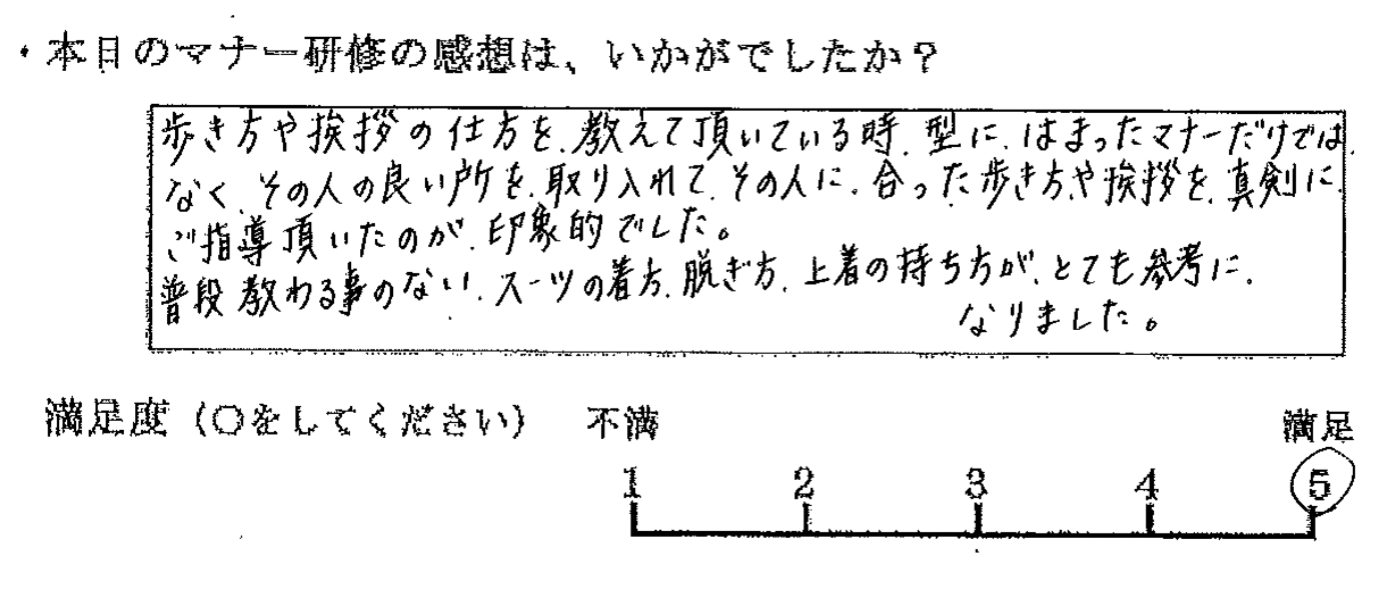 ・本日のマナー研修の感想は、いかがでしたか？
歩き方や挨拶の仕方を、教えて頂いている時、型に、はまったマナーだけでは、
なく、その人の良い所を、取り入れて、その人に、合った歩き方や挨拶を、真剣に、
ご指導頂いたのが、印象的でした。
普段教わる事のない、スーツの着方、脱ぎ方、上着の持ち方が、とても参考に、
なりました。
満足度（○をしてください） 不満 満足
1 2 3 4 5